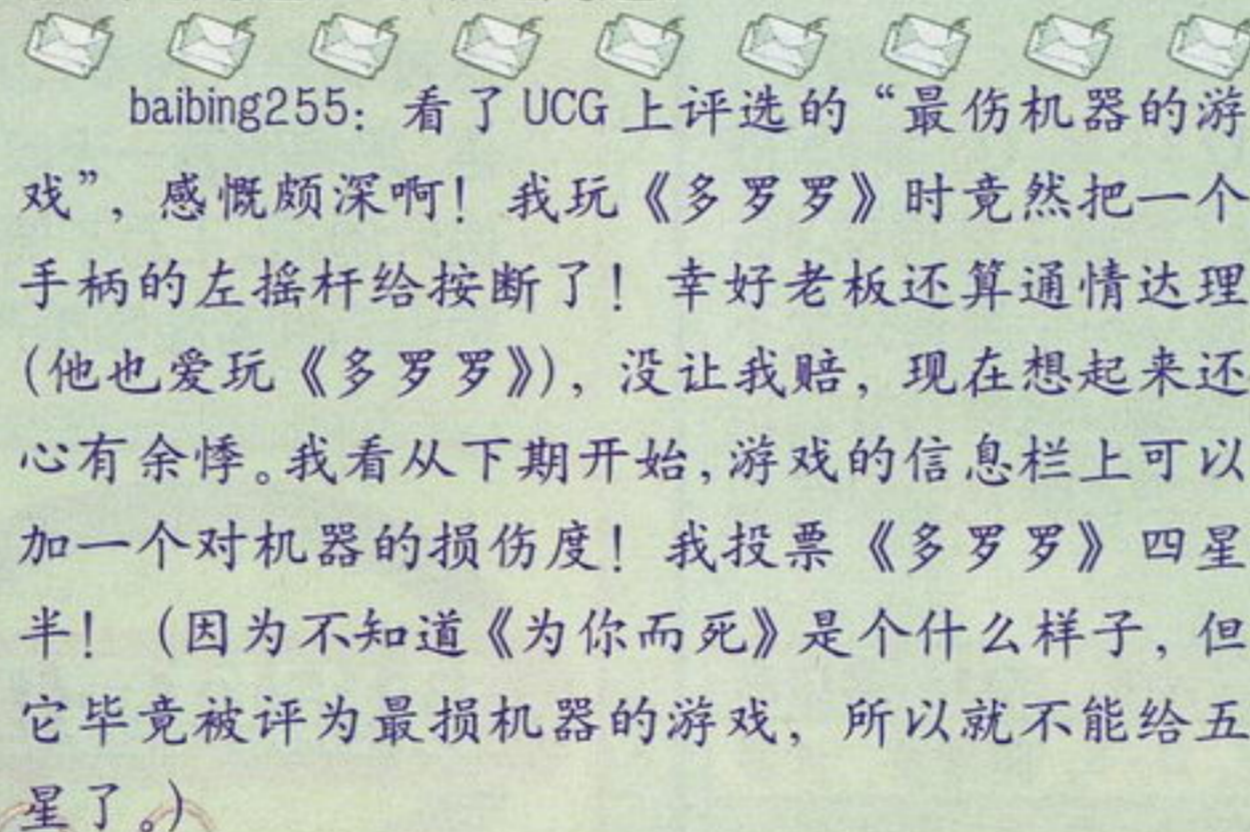 baibing255：看了UCG上评选的“最伤机器的游
戏”，感慨颇深啊！我玩《多罗罗》时竟然把一个
手柄的左摇杆给按断了！幸好老板还算通情达理
（他也爱玩《多罗罗》），没让我赔，现在想起来还
心有余悸。我看从下期开始，游戏的信息栏上可以
加一个对机器的损伤度！我投票《多罗罗》四星
半！（因为不知道《为你而死》是个什么样子，但
它毕竟被评为最损机器的游戏，所以就不能给五
星了。）